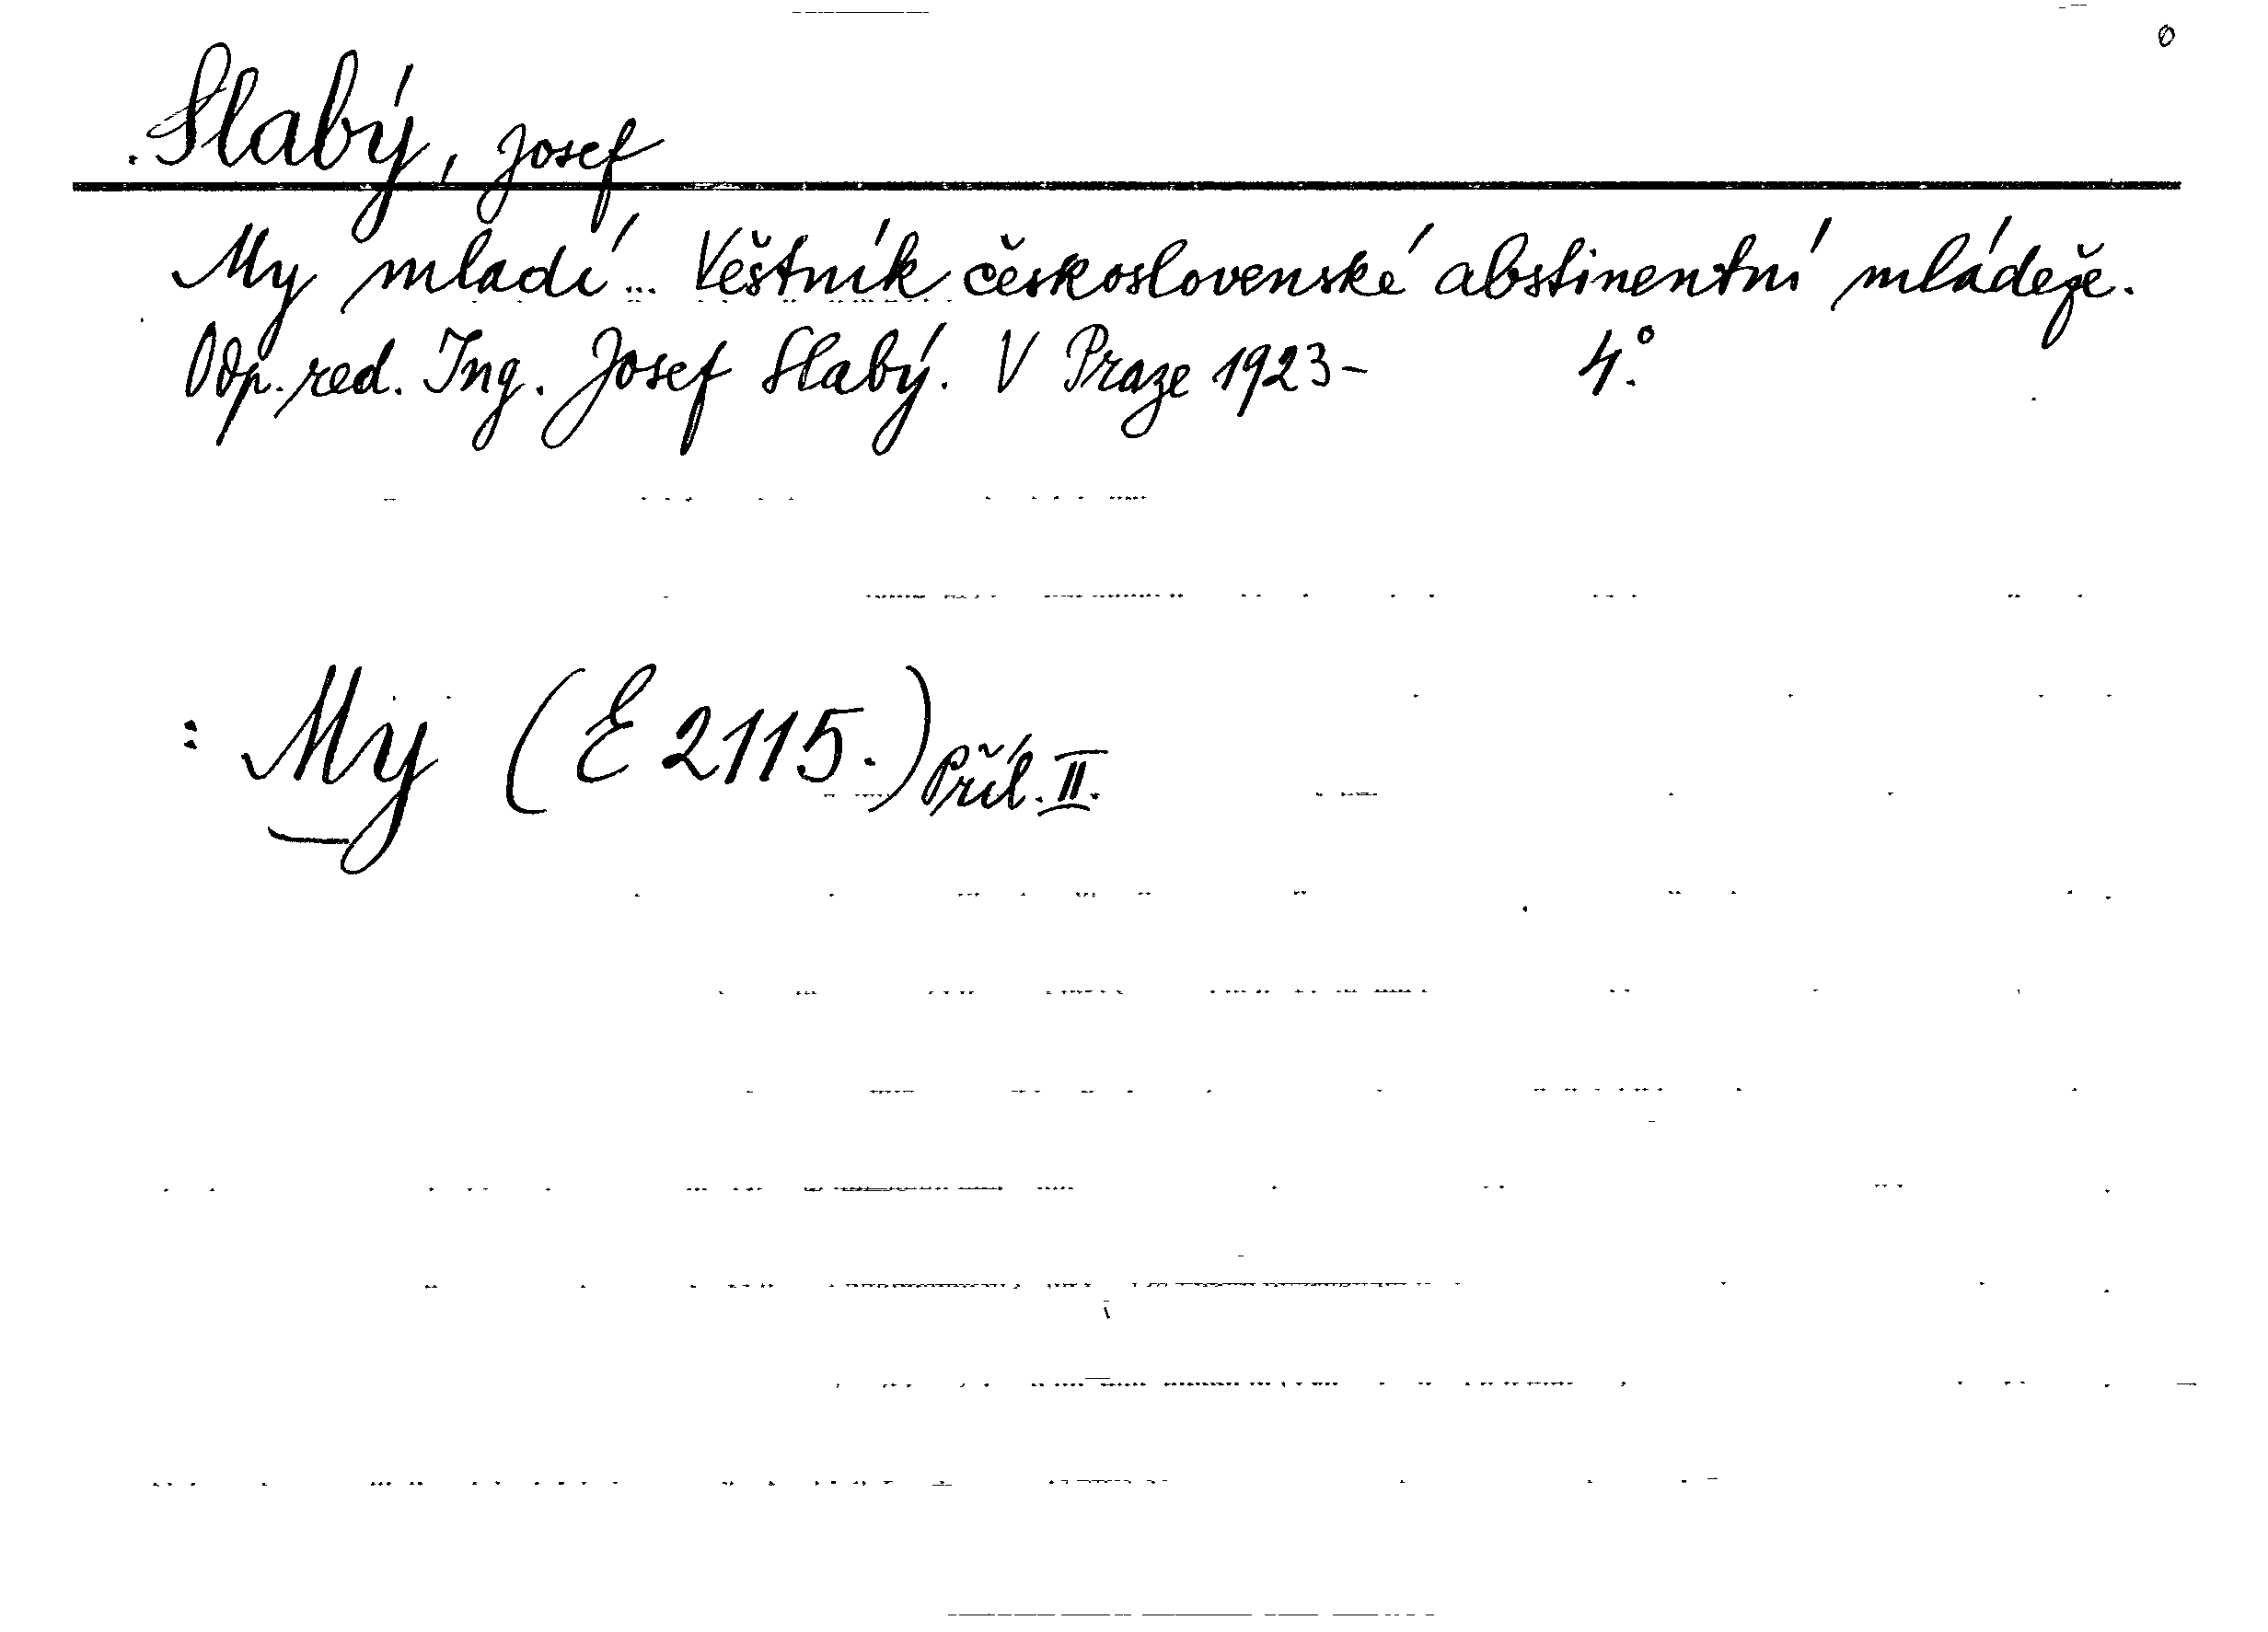 0
Slabý, Josef
My mladí... Věstník československé abstinentní mládeže.
Odp. red. Ing. Josef Slabý. V Praze 1923- 4°.
: My (E 2115.) Příl. II.